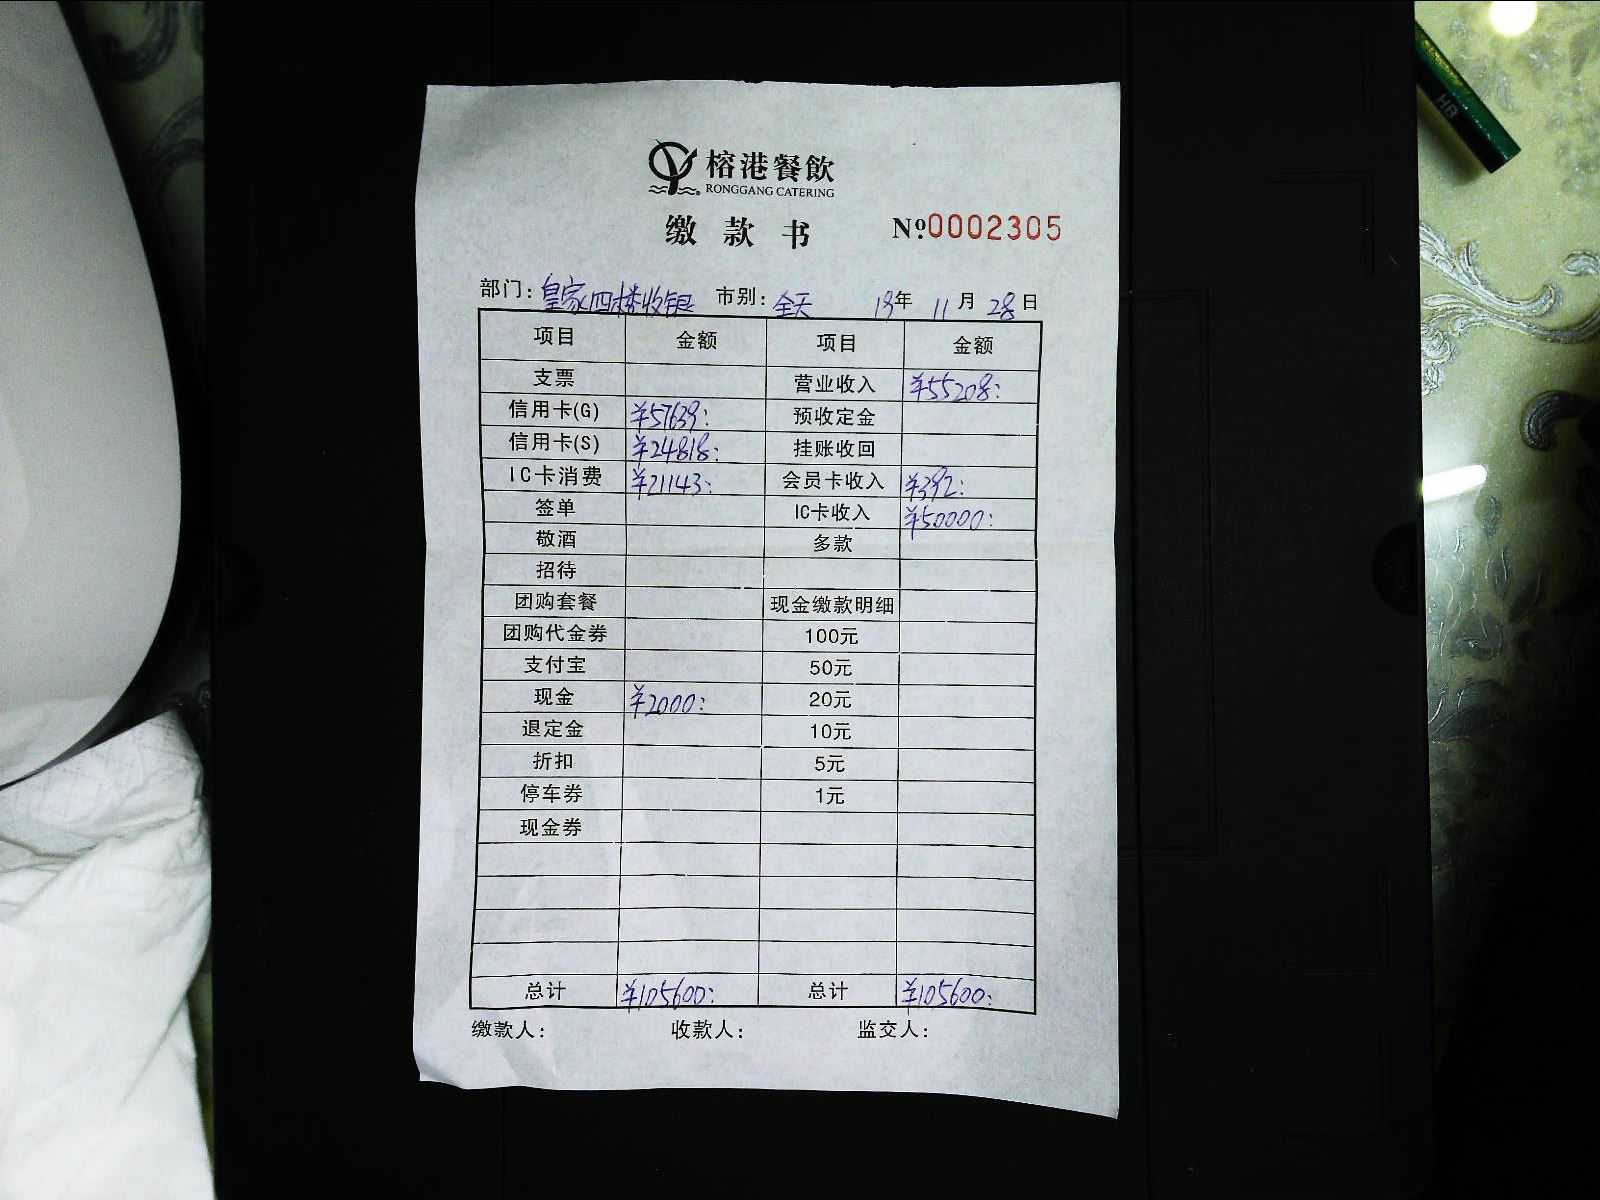 榕港餐飲
RONGGANG CATERING
缴款书 №0002305
部门：皇家四楼收银 市别：全天 19年 11月 28日
项目 金额 项目 金额
支票 营业收入 ¥55208：
信用卡(G) ¥57639： 预收定金
信用卡(S) ¥24818： 挂账收回
IC卡消费 ¥21143： 会员卡收入 ¥392：
签单 IC卡收入 ¥50000：
敬酒 多款
招待
团购套餐 现金缴款明细
团购代金券 100元
支付宝 50元
现金 ¥2000： 20元
退定金 10元
折扣 5元
停车券 1元
现金券
总计 ¥105600： 总计 ¥105600：
缴款人： 收款人： 监交人：
HB